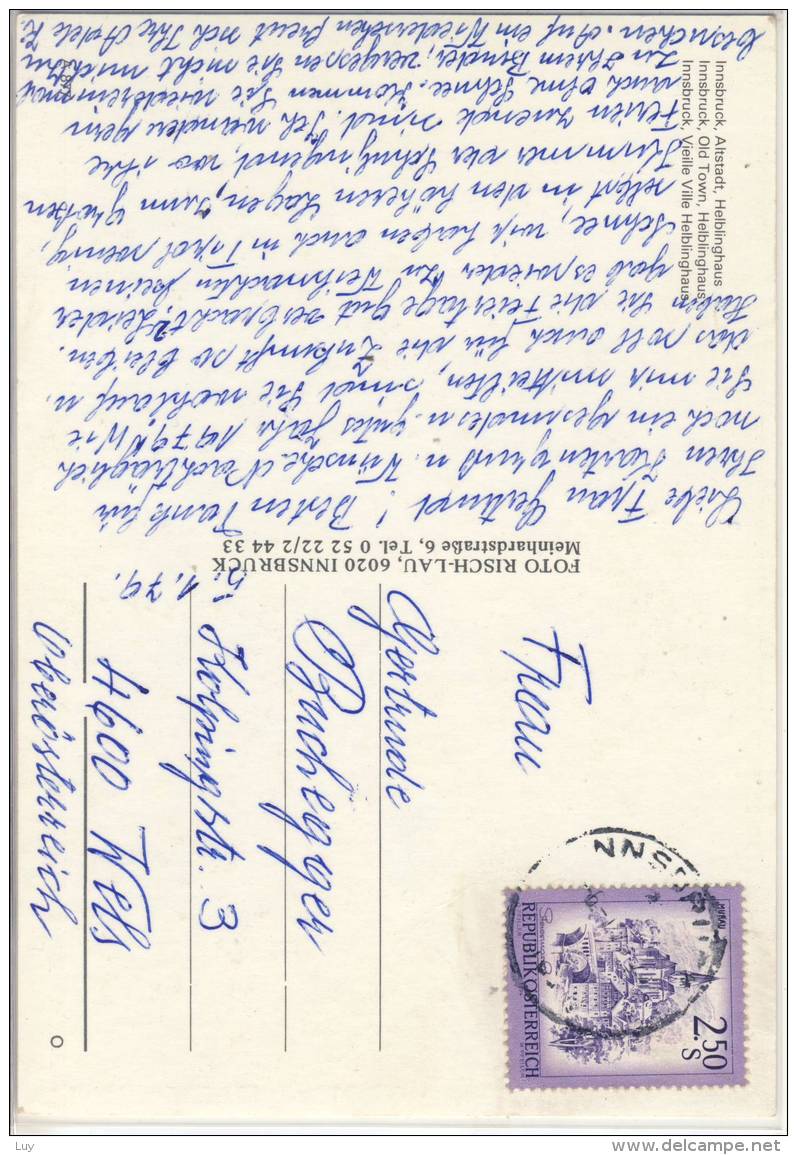 Innsbruck, Altstadt, Helblinghaus
Innsbruck, Old Town, Helblinghaus
Innsbruck, Vieille Ville Helblinghaus
FOTO RISCH-LAU, 6020 INNSBRUCK
Meinhardstraße 6, Tel. 0 52 22/2 44 33
5.1.79.
Liebe Frau Gertrud! Besten Dank für
Ihren Kartengruß u. Wünsche. Nachträglich
noch ein gesundes u. gutes Jahr 1979. Wie
Sie mir mitteilten, sind Sie wohlauf u.
das soll auch für die Zukunft so bleiben.
Haben Sie die Feiertage gut verbracht? Leider
gab es wieder zu Weihnachten keinen
Schnee, wir haben auch in Tirol wenig,
selbst in den höheren Lagen, zum großen
Kummer der Schuljugend, wo ihre
Ferien zuende sind. Ich wandere gern
auch ohne Schnee. Kommen Sie wiedereinmal
zu Ihrem Bruder, vergessen Sie nicht mich zu
besuchen. Auf ein Wiedersehen freut sich Ihre Adele K.
Frau
Gertrude
Buchegger
Kolpingstr. 3
4600 Wels
Oberösterreich
MURAU
2.50
S
REPUBLIK ÖSTERREICH
NNSBRU
Luy